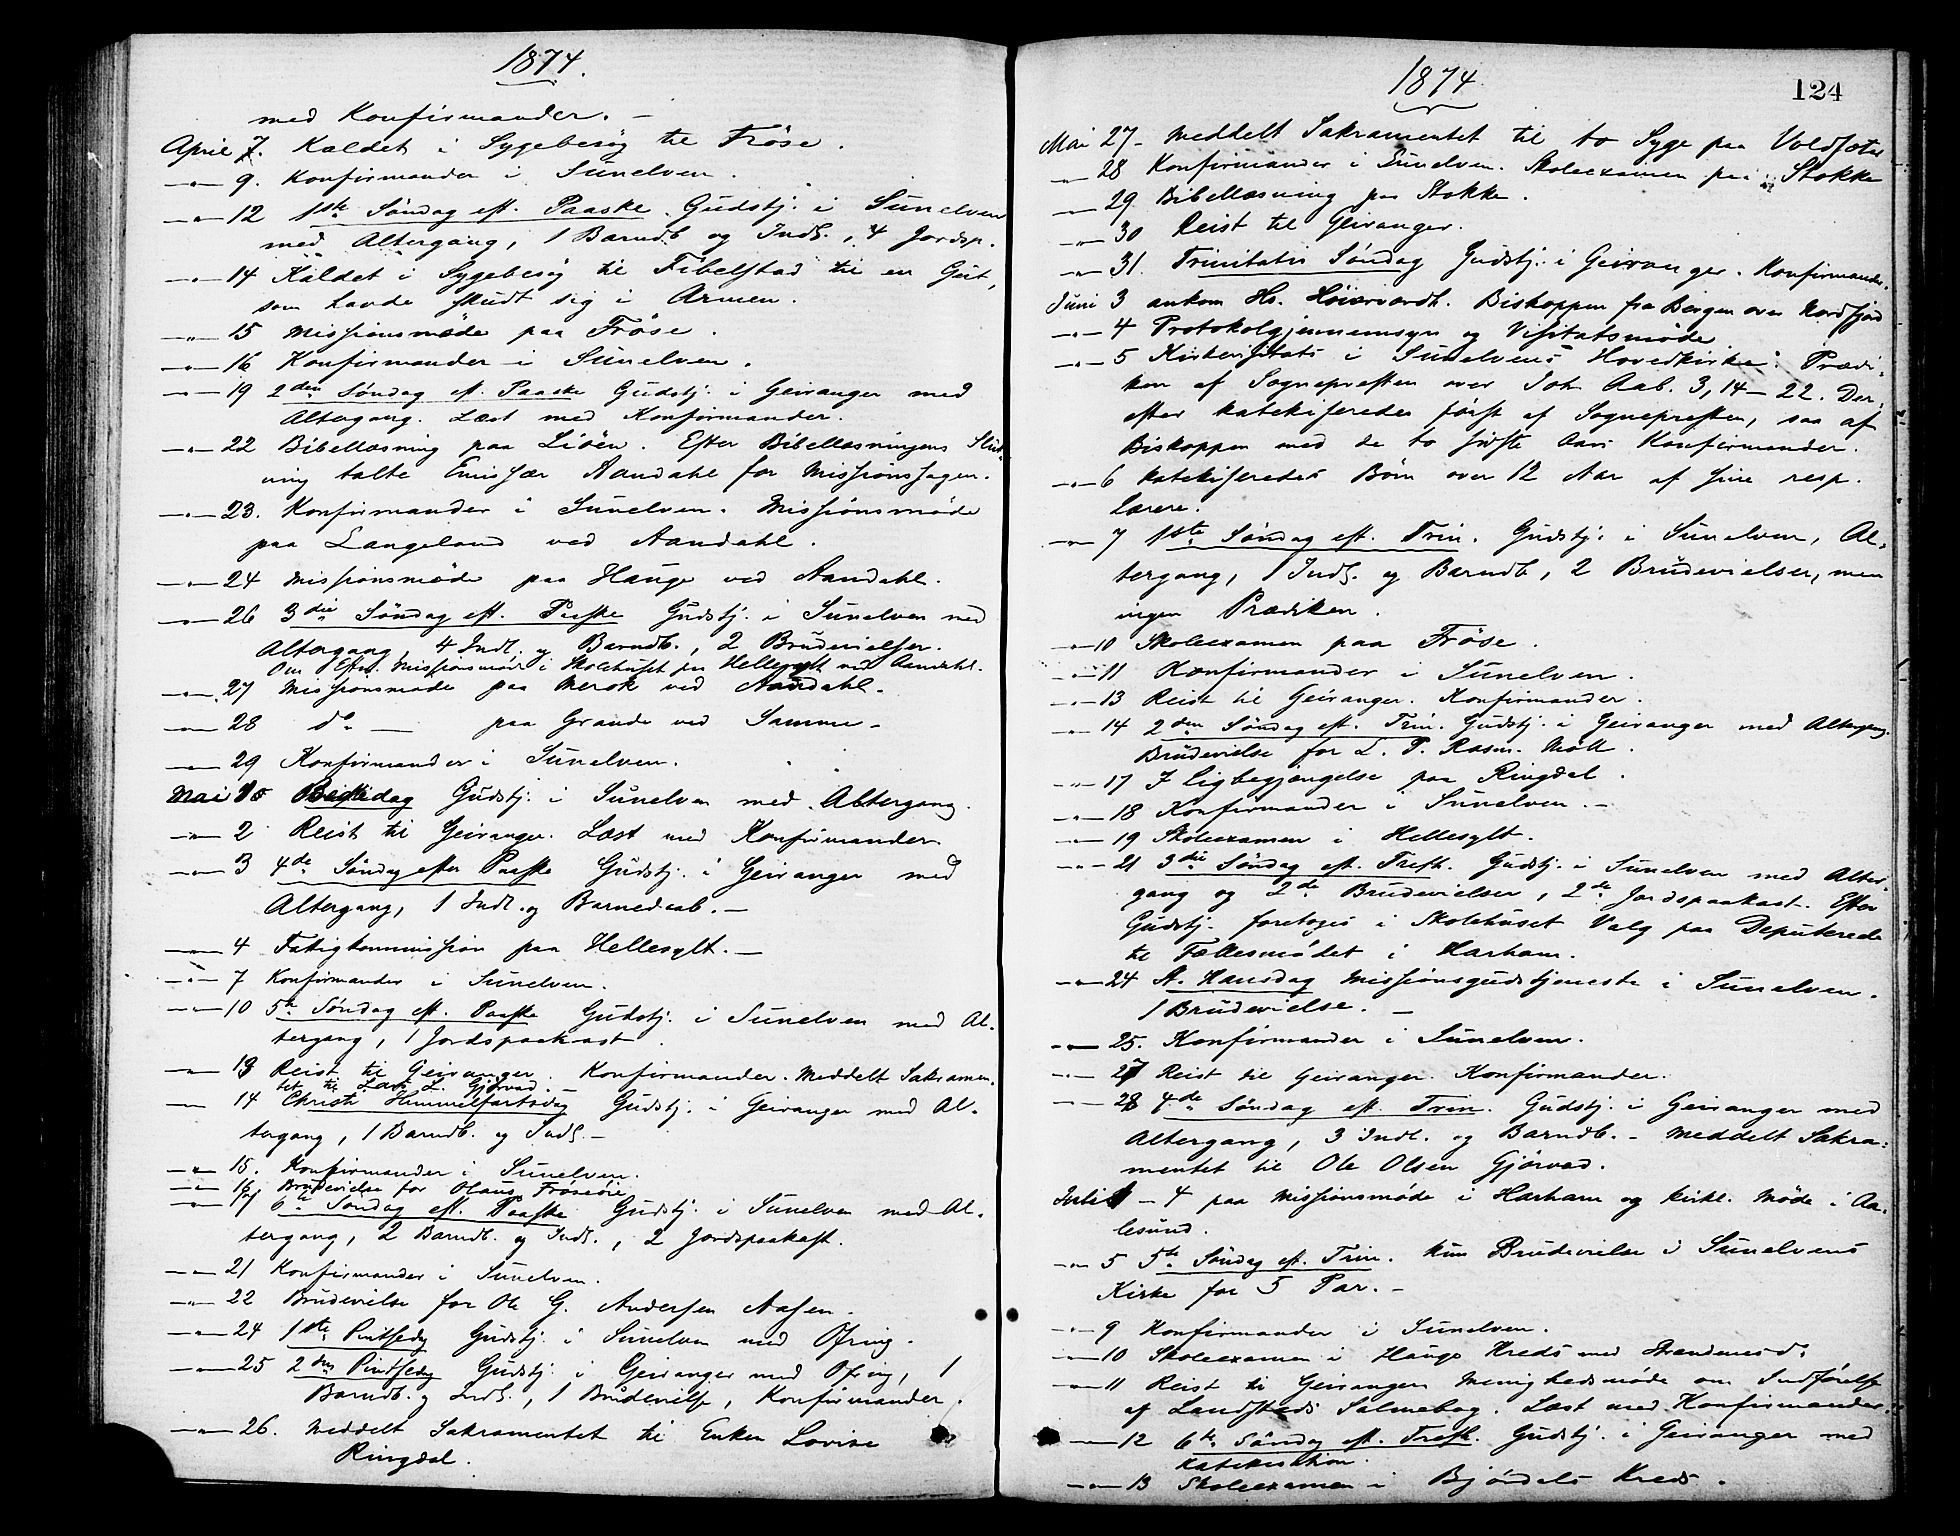 1874.
med Konfirmander. –
April 7. Kaldet i Sygebesög til Fröse.
–„– 9. Konfirmander i Sunelven.
–„– 12 1ste Söndag eft. Paaske. Gudstj. i Sunelven
med Altergang, 1 Barndb og Indl., 4 Jordsp.
–„– 14 Kaldet i Sygebesög til Fibelstad til en Gut,
som havde skudt sig i Armen.
–„– 15 Missionsmöde paa Fröse.
–„– 16 Konfirmander i Sunelven.
–„– 19 2den Söndag eft. Paaske Gudstj. i Geiranger med
Altergang. Læst med Konfirmander.
–„– 22 Bibellæsning paa Liöen. Efter Bibellæsningens Slut-
ning talte Emissær Aandahl for Missionssagen.
–„– 23. Konfirmander i Sunelven. Missionsmöde
paa Langeland ved Aandahl.
–„– 24 Missionsmöde paa Hauge ved Aandahl.
–„– 26 3die Söndag eft. Paaske Gudstj. i Sunelven med
Altergang, 4 Indl. og Barndb., 2 Brudevielser.
Om Efm. Missionsmöde i Skolehuset paa Hellesylt ved Aandahl.
–„– 27 Missionsmöde paa Merok ved Aandahl.
–„– 28 do – paa Grande ved Samme –
–„– 29 Konfirmander i Sunelven.
Mai Bededag Gudstj. i Sunelven med Altergang.
–„– 2 Reist til Geiranger. Læst med Konfirmander
–„– 3 4de Söndag efter Paaske Gudstj. i Geiranger med
Altergang, 1 Indl. og Barnedaab. –
–„– 4 Fatigkommission paa Hellesylt. –
–„– 7 Konfirmander i Sunelven.
–„– 10 5te Söndag eft. Paaske Gudstj. i Sunelven med Al-
tergang, 1 Jordspaakast.
–„– 13 Reist til Geiranger. Konfirmander. Meddelt Sakramen-
tet til Lars L. Gjörvad. –
–„– 14 Christi Himmelfartsdag Gudstj. i Geiranger med Al-
tergang, 1 Barndb. og Indl. –
–„– 15. Konfirmander i Sunelven.
–„– 16 Brudevielse for Olaus Fröseöie
–„– 17 6te Söndag eft. Paaske Gudstj. i Sunelven med Al-
tergang, 2 Barndb. og Indl., 2 Jordspaakast.
–„– 21 Konfirmander i Sunelven.
–„– 22 Brudevielse for Ole G. Andersen Aasen.
–„– 24 1ste Pintsedag Gudstj. i Sunelven med Ofring.
–„– 25 2den Pindsedag Gudstj. i Geiranger med Ofring, 1
Barndb. og Indl., 1 Brudevielse, Konfirmander.
–„– 26. Meddelt Sakramentet til Enken Lovise
Ringdal.
1874
124
Mai 27 – Meddelt Sakramentet til to Syge paa Voldsæter
–„– 28 Konfirmander i Sunelven. Skoleexamen paa Stokke
–„– 29 Bibellæsning paa Stokke.
–„– 30 Reist til Geiranger.
–„– 31. Trinitatis Söndag Gudstj. i Geiranger. Konfirmander.
Juni 3 ankom Hs. Höiærværdh. Biskoppen fra Bergen over Nordfjord
–„– 4 Protokolgjennemsyn og Visitatsmöde
–„– 5 Kirkevisitats i Sunelvens Hovedkirke. Prædi-
ken af Sognepresten over Joh. Aab. 3, 14 – 22. Der-
efter katekiseredes först af Sognepresten, saa af
Biskoppen med de to sidste Aars Konfirmander.
–„– 6 katekiseredes Börn over 12 Aar af sine resp.
Lærere.
–„– 7 1ste Söndag eft. Trin. Gudstj. i Sunelven, Al-
tergang, 1 Indl. og Barndb, 2 Brudevielser, men
ingen Prædiken.
–„– 10 Skoleexamen paa Fröse.
–„– 11 Konfirmander i Sunelven.
–„– 13 Reist til Geiranger. Konfirmander.
–„– 14 2den Söndag eft. Trin. Gudstj. i Geiranger med Altergang.
Brudevielse for L. P. Rasm. Möll.
–„– 17 I Ligbegjængelse paa Ringdal.
–„– 18 Konfirmander i Sunelven. –
–„– 19 Skoleexamen i Hellesylt.
–„– 21 3die Söndag eft. Trefh. Gudstj. i Sunelven med Alter-
gang og 2de Brudevielser, 2de Jordspaakast. Efter
Gudstj. foretoges i Skolehuset Valg paa Deputerede
til Fællesmödet i Harham.
–„– 24 St. Hansdag Missionsgudstjeneste i Sunelven.
1 Brudevielse. –
–„– 25. Konfirmander i Sunelven.
–„– 27 Reist til Geiranger. Konfirmander.
–„– 28 4de Söndag eft. Trin. Gudstj. i Geiranger med
Altergang, 3 Indl. og Barndb. – Meddelt Sakra-
mentet til Ole Olsen Gjörvad.
Juli – 4 paa Missionsmöde i Harham og kirkl. Möde i Aa-
lesund.
–„– 5 5te Söndag eft. Trin. kun Brudevielse i Sunelvens
Kirke for 5 Par. –
–„– 9 Konfirmander i Sunelven.
–„– 10 Skoleexamen i Hauge Kreds med
–„– 11 Reist til Geiranger Menighedsmöde om Indförelse
af Landstads Salmebog. Læst med Konfirmander.
–„– 12 6te Söndag eft. Trefh. Gudstj. i Geiranger med
Katekisation.
–„– 13 Skoleexamen i Björdals Kreds.